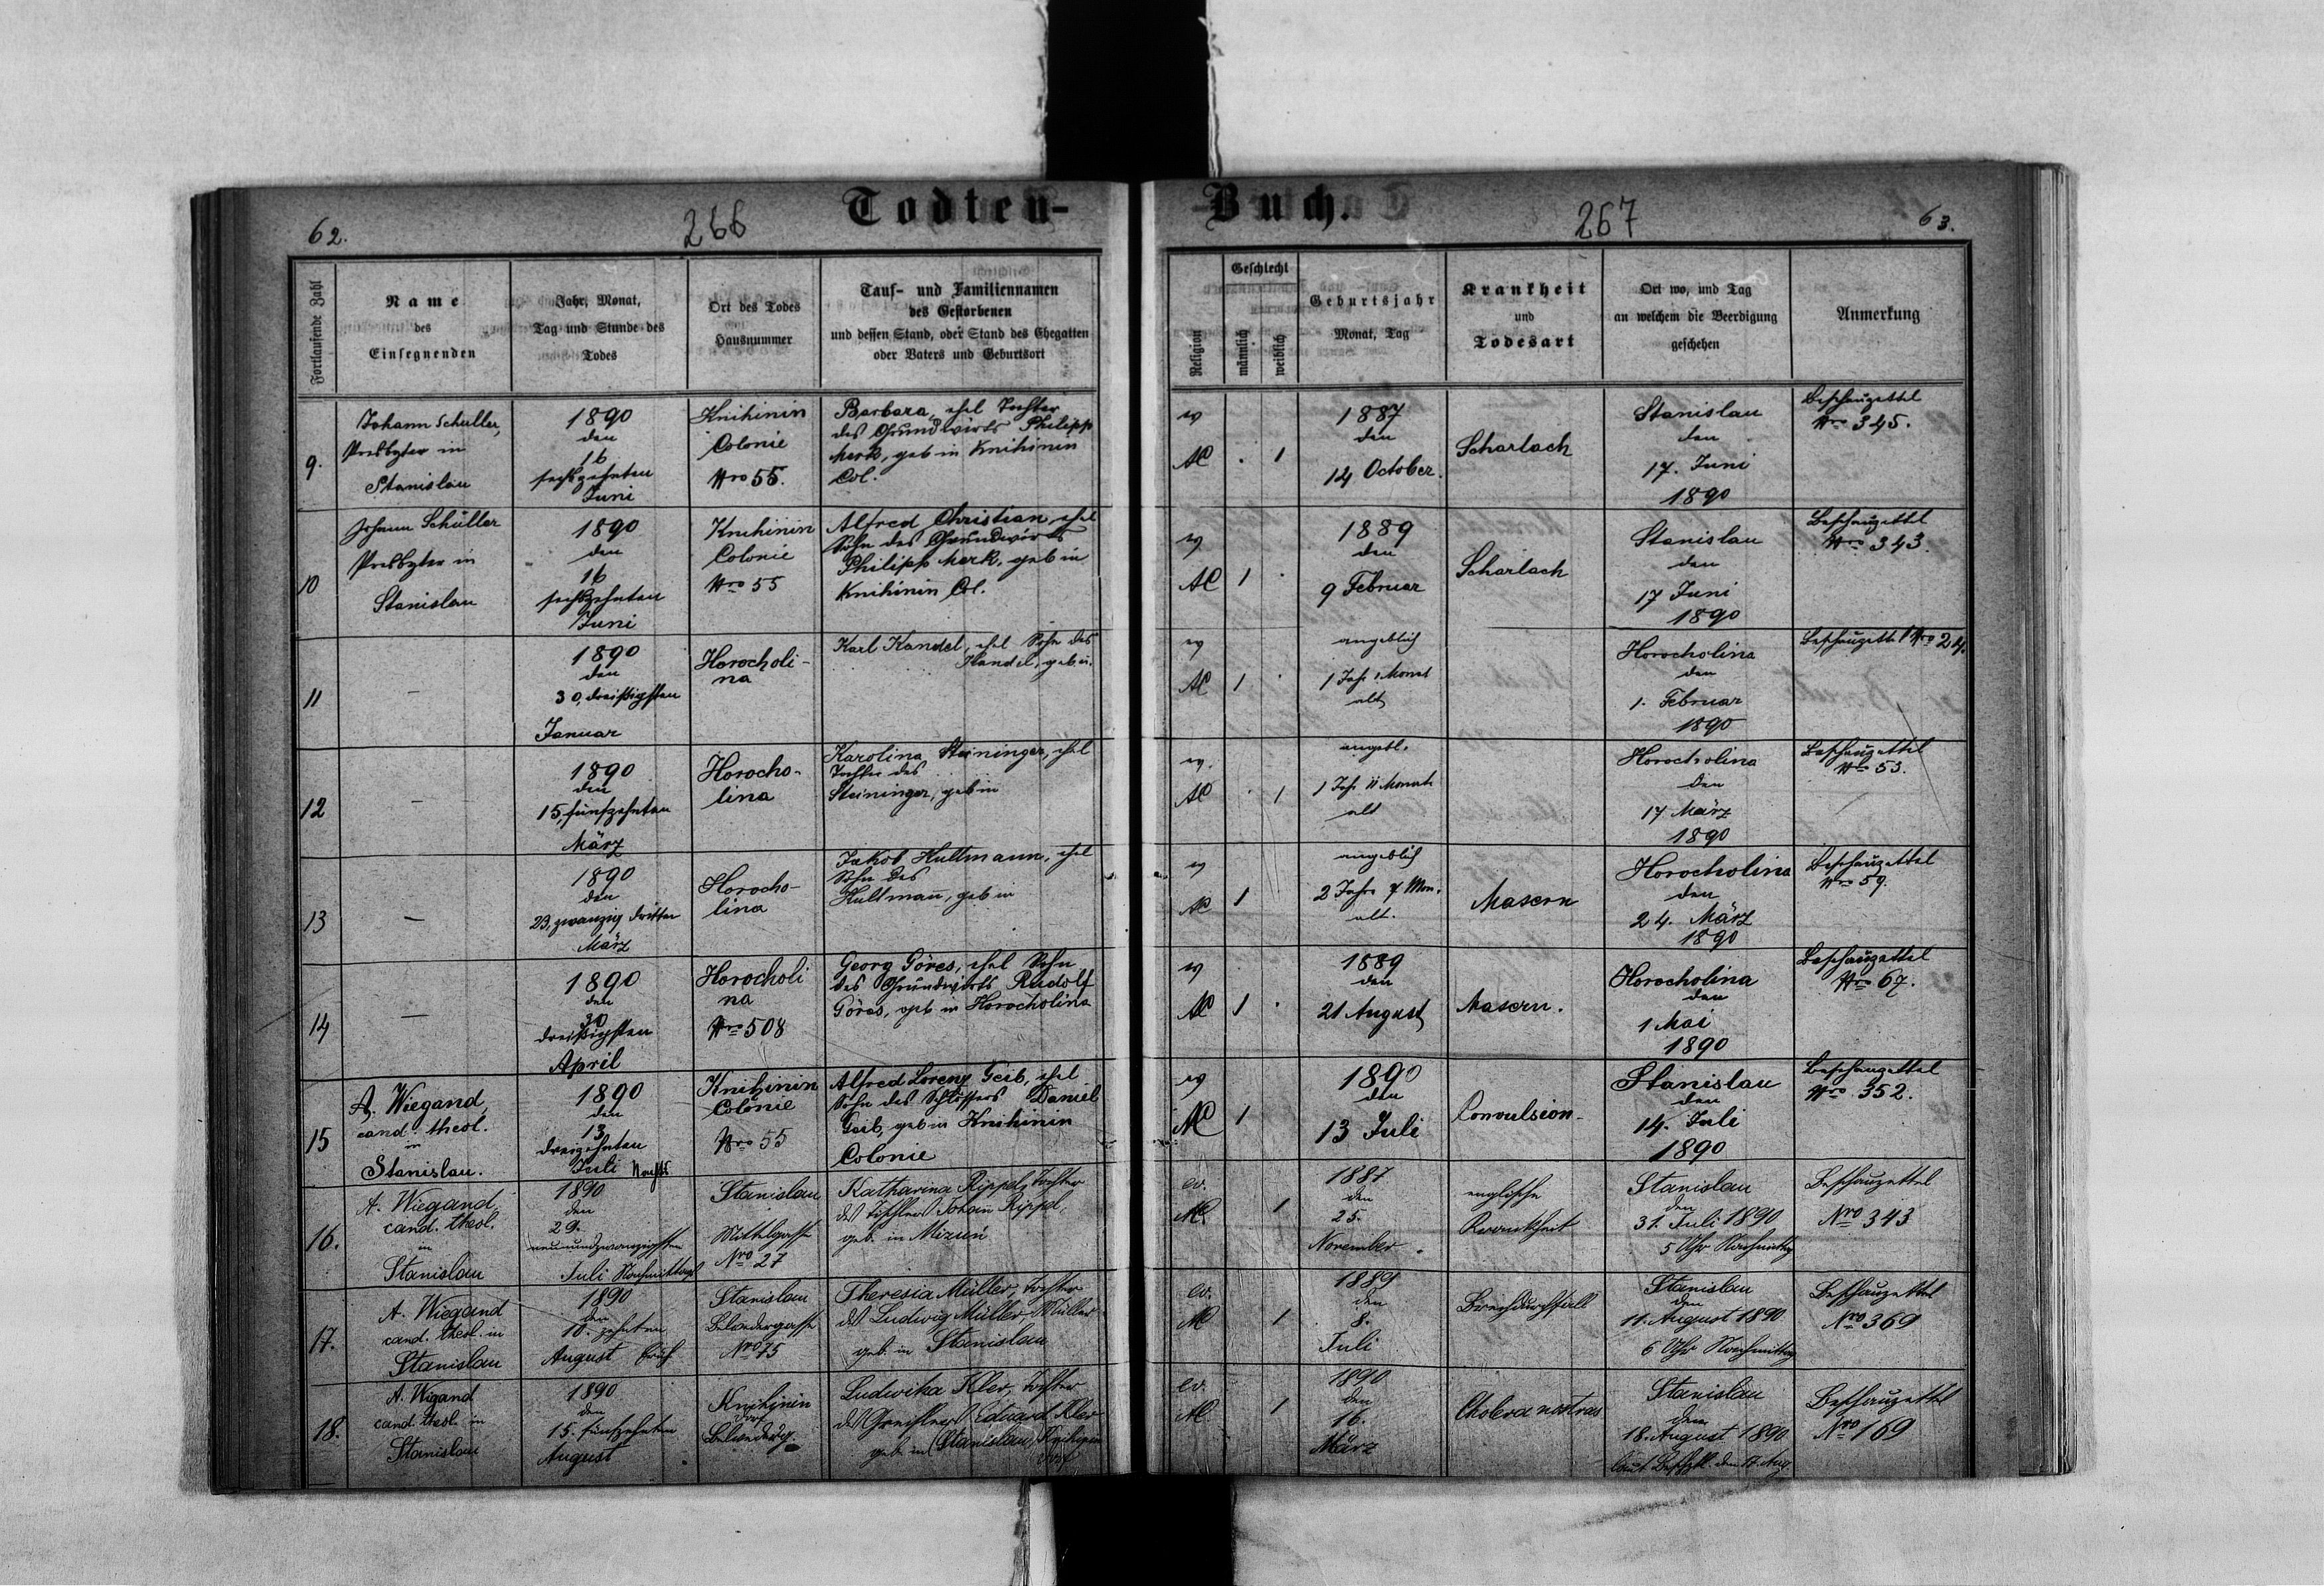 62.
266
Todten-
Fortlaufende Zahl
Name
des
Einsegnenden
Jahr, Monat,
Tag und Stunde des
Todes
Ort des Todes
Hausnummer
Tauf- und Familiennamen
des Gestorbenen
und dessen Stand, oder Stand des Ehegatten
oder Vaters und Geburtsort
9.
Johann Schuller,
Presbyter in
Stanislau
1890
den
16
sechszehnten
Juni
Knihinin
Colonie
Nro 55.
Barbara, ehel Tochter
des Grundwirts Philipp
Merk, geb in Knihinin
Col.
10
Johann Schüller
Presbyter in
Stanislau
1890
den
16
sechszehnten
Juni
Knihinin
Colonie
Nro 55
Alfred Christian, ehel
Sohn des Grundwirts
Philipp Merk, geb in
Knihinin Col.
11
—
1890
den
30, dreißigsten
Januar
Horocholi-
na
Karl Kandel, ehel Sohn des
Kandel, geb in
12
—
1890
den
15, fünfzehnten
März
Horocho-
lina
Karolina Steininger, ehel
Tochter des
Steininger, geb in
13
—
1890
den
23, zwanzig dritten
März
Horocho-
lina
Jakob Hultmann, ehel
Sohn des
Hultmañ, geb in
14
—
1890
den
30
dreißigsten
April
Horocholi
na
Nro 508
Georg Göres, ehel Sohn
des Grundwirts Rudolf
Göres, geb in Horocholina
15
A. Wiegand,
cand. theol.
in
Stanislau.
1890
den
13,
dreizehnten
Juli Nachts
Knihinin
Colonie
Nro 55
Alfred Lorenz Geib, ehel
Sohn des Schlossers Daniel
Geib, geb in Knihinin
Colonie
16.
A. Wiegand,
cand. theol.
in
Stanislau
1890
den
29.
neunundzwanzigsten
Juli Nachmittags
Stanislau
Mittelgasse
Nro 27
Katharina Rippel, Tochter
des Tischlers Johan Rippel,
geb. in Mizuń
17.
A. Wiegand
cand. theol. in
Stanislau
1890
den
10. zehnten
August früh
Stanislau
Belvedergasse
Nro 75
Theresia Müller, Tochter
des Ludwig Müller, Müller
geb. in Stanislau
18.
A. Wigand
cand. theol. in
Stanislau
1890
den
15. fünfzehnten
August
Knihinin
Dorf
Belvederg.
Ludwika Kler, Tochter
des Greislers Eduard Kler
geb. in (Stanislau) Knihinin
Dorf
Buch.
267
63.
Religion
Geschlecht
männlich
weiblich
Geburtsjahr
Monat, Tag
Krankheit
und
Todesart
Ort wo, und Tag
an welchem die Beerdigung
geschehen
Anmerkung
ev
AC
1
1887
den
14 October.
Scharlach
Stanislau
den
17. Juni
1890
Beschauzettel
Nro 345.
ev
AC
1
1889
den
9 Februar
Scharlach
Stanislau
den
17 Juni
1890
Beschauzettel
Nro 343.
ev
AC
1
angeblich
1 Jahr 1 Monat
alt
Horocholina
den
1. Februar
1890
Beschauzettel Nro 24.
ev.
AC
1
angebl.
1 Jahr 11 Monate
alt
Horocholina
den
17 März
1890
Beschauzettel
Nro 53.
ev
AC
1
angeblich
2 Jahre 7 Mon.
alt.
Masern
Horocholina
den
24. März
1890
Beschauzettel
Nro 59.
ev
AC
1
1889
den
21 August
Masern.
Horocholina
den
1 Mai
1890
Beschauzettel
Nro 67.
ev
AC
1
1890
den
13 Juli
Convulsion-
Stanislau
den
14. Juli
1890
Beschauzettel
Nro 352.
ev.
AC
1
1887
den
25.
November.
englische
Krankheit
Stanislau
den
31. Juli 1890
5 Uhr Nachmittag
Beschauzettel
Nro 343
ev.
AC
1
1889
den
8.
Juli
Brechdurchfall
Stanislau
den
11. August 1890
6 Uhr Nachmittag
Beschauzettel
Nro 369
ev.
AC
1
1890
den
16.
März
Cholera nostras
Stanislau
den
18. August 1890
laut Beschztl. den 17. Aug.
Beschauzettel
Nro 169